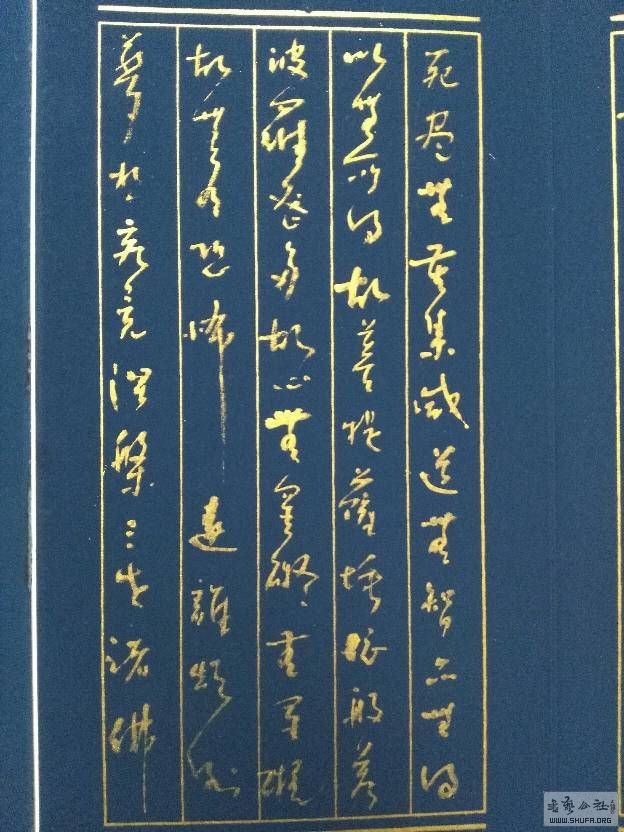 死盡無苦集滅道無智亦無得
以無所得故菩提薩埵依般若
波羅蜜多故心無罣礙無罣礙
故無有恐怖 遠離顛倒
夢想究竟涅槃三世諸佛
书艺公社
WWW.SHUFA.ORG